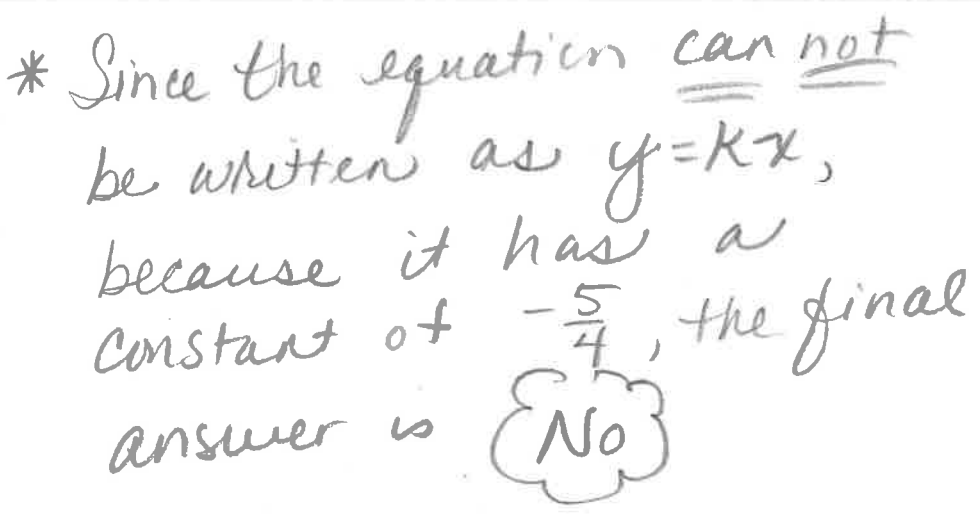 * Since the equation can not
be written as y=kx,
because it has a
constant of -5/4, the final
answer is No